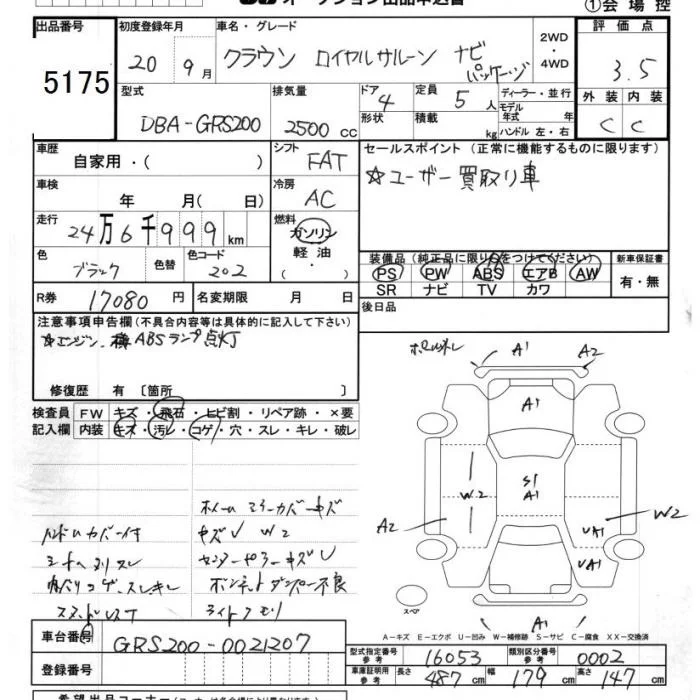 オークション出品申込書 ①会場控
出品番号 初度登録年月 車名・グレード 評価点
5175 20 9月 クラウン ロイヤルサルーン ナビパッケージ 2WD・4WD 3.5
型式 排気量 ドア 定員 ディーラー・並行 外装 内装
DBA-GRS200 2500cc 4 5人 モデル年式 年 C C
形状 積載 kg ハンドル 左・右
車歴 シフト セールスポイント (正常に機能するものに限ります)
自家用・( ) FAT ☆ユーザー買取り車
車検 年 月( 日) 冷房 AC
走行 24万6千999km 燃料 ガソリン・軽油・
色 ブラック 色替 色コード 202
装備品 (純正品に限り○をつけてください) 新車保証書
PS PW ABS エアB AW 有・無
SR ナビ TV カワ
R券 17080円 名変期限 月 日 後日品
注意事項申告欄 (不具合内容等は具体的に記入して下さい)
☆エンジン、ABSランプ点灯
修復歴 有 〔箇所
検査員記入欄 FW キズ・飛石・ヒビ割・リペア跡・×要
内装 キズ・汚レ・コゲ・穴・スレ・キレ・破レ
A1 A2
A1
S1
A1
W2
A2
W2
UA1
UA1
A1
スペア
ホイール ミラーカバー キズ
キズ W2
ハンドルカバー付
ボンネットダンパー不良
A-キズ E-エクボ U-凹み W-補修跡 S-サビ C-腐食 XX-交換済
車台番号 GRS200-0021207
登録番号
型式指定番号 参考 16053 類別区分番号 参考 0002
車庫証明用 参考 長さ 487cm 幅 179cm 高さ 147cm
希望出品コーナー